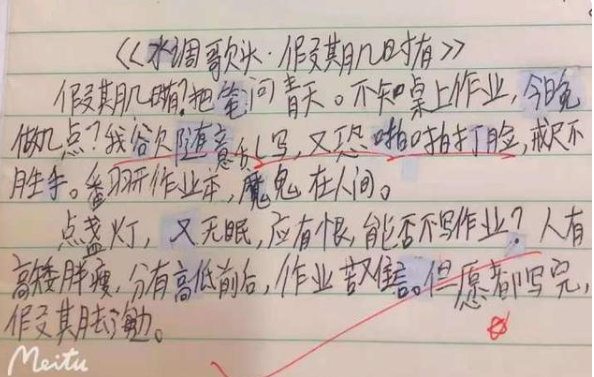 《水调歌头·假期几时有》
假期几时有？把笔问青天。不知桌上作业，今晚
做几点？我欲随意乱写，又恐啪啪打脸，戒尺不
胜手。翻开作业本，魔鬼在人间。
点盏灯，又无眠，应有恨，能否不写作业？人有
高矮胖瘦，分有高低前后，作业苦难言。但愿都写完，
假期去海边。
Meitu